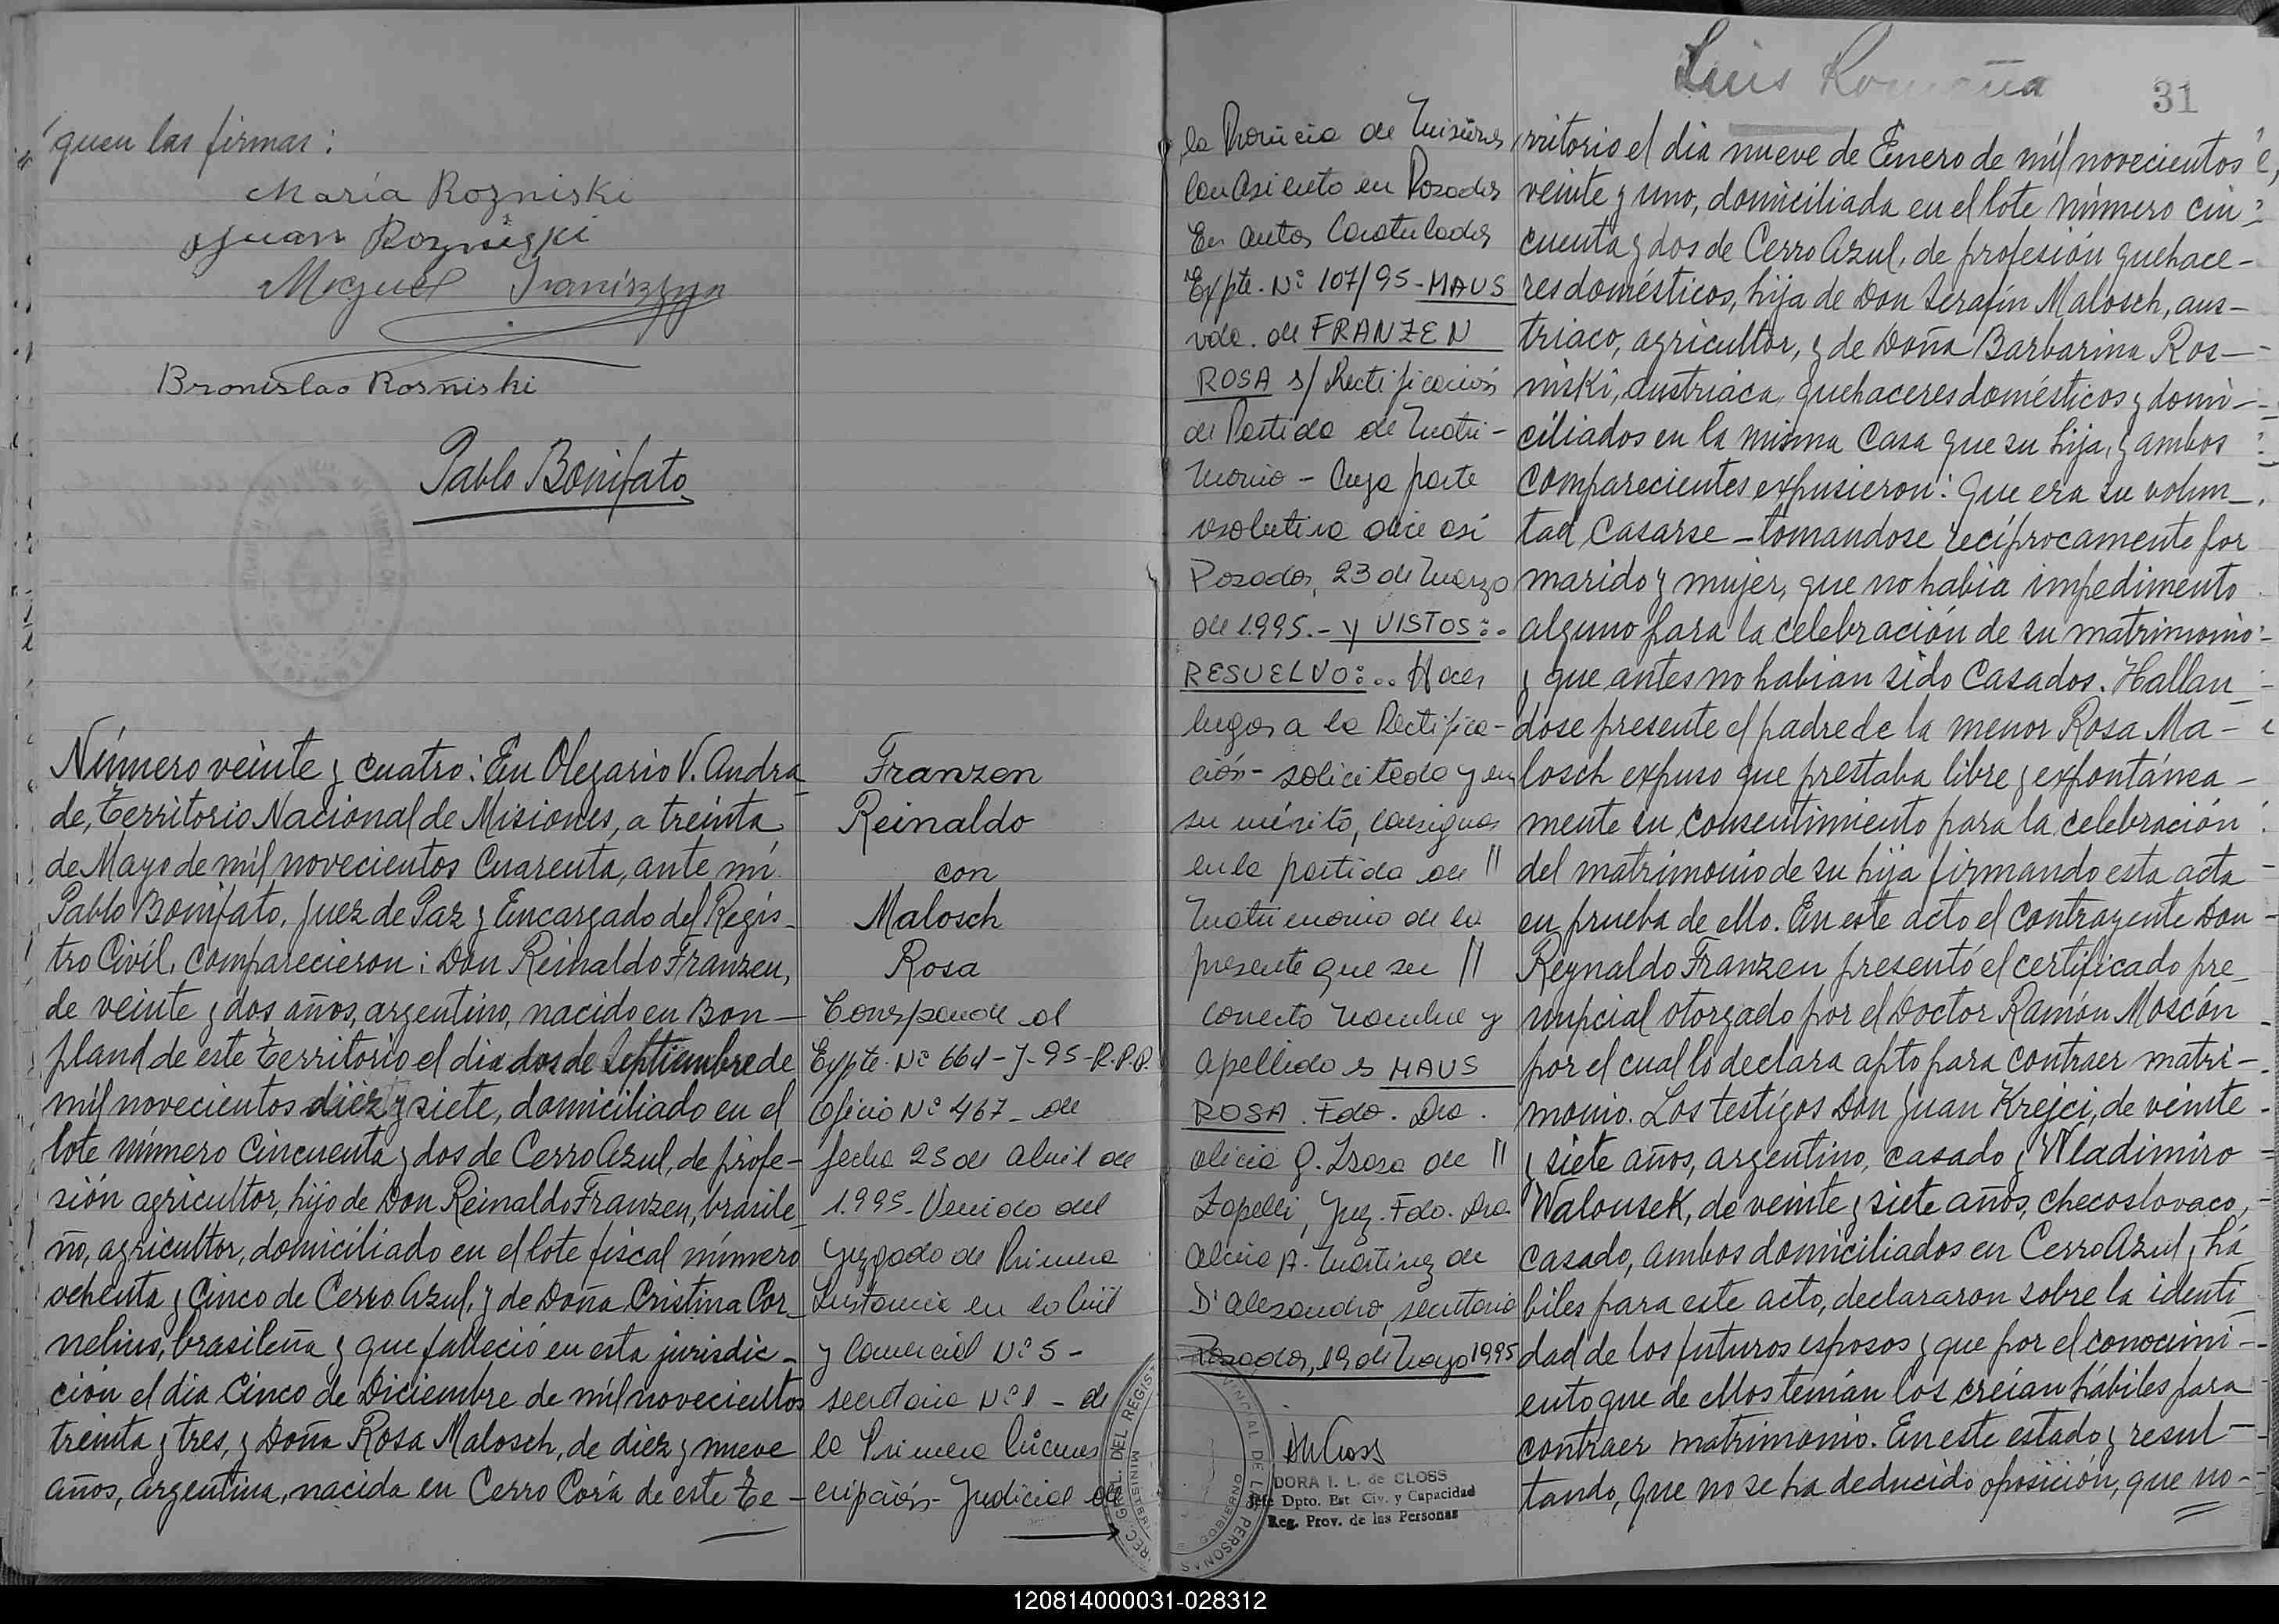 quen las firmas:
María Rozniski
Juan Rozniski
Miguel
Bronislao Rosñiski
Pablo Bonifato
Número veinte y cuatro: En Olegario V. Andra-
de, territorio Nacional de Misiones, a treinta
de Mayo de mil novecientos cuarenta, ante mí
Pablo Bonifato, Juez de Paz y Encargado del Regis-
tro Civíl, comparecieron: Don Reinaldo Franzen,
de veinte y dos años, argentino, nacido en Bon-
pland de este territorio el dia dos de Septiembre de
mil novecientos diéz y siete, domiciliado en el
lote número cincuenta y dos de Cerro Azul, de profe-
sión agricultor, hijo de Don Reinaldo Franzen, brasile-
ño, agricultor, domiciliado en el lote fiscal número
ochenta y cinco de Cerro Azul, y de Doña Cristina Cor-
nelius, brasileña y que falleció en esta jurisdic-
ción el dia cinco de Diciembre de mil novecientos
treinta y tres, y Doña Rosa Malosch, de diez y nueve
años, argentina, nacida en Cerro Corá de este te-
Franzen
Reinaldo
con
Malosch
Rosa
Corresponde al
Expte. Nº 664-J-95-R.P.P.
Oficio Nº 467- de
fecha 25 de Abril de
1.995- Venido del
Juzgado de Primera
Instancia en lo Civil
y Comercial Nº 5-
secretaria Nº 1 - de
la Primera Circuns
cripción- Judicial de
REC. GRAL. DEL REGIS
MINISTE
la Provincia de Misiones
con Asiento en Posadas
En autos Caratulados
Expte. Nº 107/95-MAUS
vda. de FRANZEN
ROSA s/ Rectificación
de Partida de Matri-
monio - Cuya parte
resolutiva dice así
Posadas, 23 de Marzo
de 1.995.- y VISTOS:.
RESUELVO:.. Hacer
lugar a la Rectifica-
ción- solicitada y en
su mérito, consignar
en la partida de //
Matrimonio de la
presente que su //
correcto nombre y
apellido es MAUS
ROSA. Fdo. Dra.
Alicia G. Isasa de //
Zapelli, Juez. Fdo. Dra.
Alcira A. Martinez de
D'Alesandro, secretaria
Posadas, 19 de Mayo 1995
DORA I. L. de CLOSS
Jefe Dpto. Est. Civ. y Capacidad
Reg. Prov. de las Personas
VINCIAL DE LAS PERSONAS
GOBIERNO
Luis Romaña
31
rritorio el dia nueve de Enero de mil novecientos
veinte y uno, domiciliada en el lote número cin-
cuenta y dos de Cerro Azul, de profesión quehace-
res domésticos, hija de Don Serafín Malosch, aus-
triaco, agricultor, y de Doña Barbarina Ros-
niski, austriaca, quehaceres domésticos y domi-
ciliados en la misma casa que su hija, y ambos
comparecientes expusieron: Que era su volun-
tad casarse - tomandose recíprocamente por
marido y mujer, que no habia impedimento
alguno para la celebración de su matrimonio
y que antes no habian sido casados. Hallan-
dose presente el padre de la menor Rosa Ma-
losch expuso que prestaba libre y expontánea-
mente su consentimiento para la celebración
del matrimonio de su hija firmando esta acta
en prueba de ello. En este acto el contrayente Don
Reynaldo Franzen presentó el certificado pre-
nupcial otorgado por el Doctor Ramón Moscón
por el cual lo declara apto para contraer matri-
monio. Los testigos Don Juan Krejci, de veinte
y siete años, argentino, casado y Wladimiro
Walousek, de veinte y siete años, checoslovaco,
casado, ambos domiciliados en Cerro Azul, y há-
biles para este acto, declararon sobre la identi-
dad de los futuros esposos y que por el conocimi-
ento que de ellos tenían los creían hábiles para
contraer matrimonio. En este estado y resul-
tando, que no se ha deducido oposición, que no-
120814000031-028312